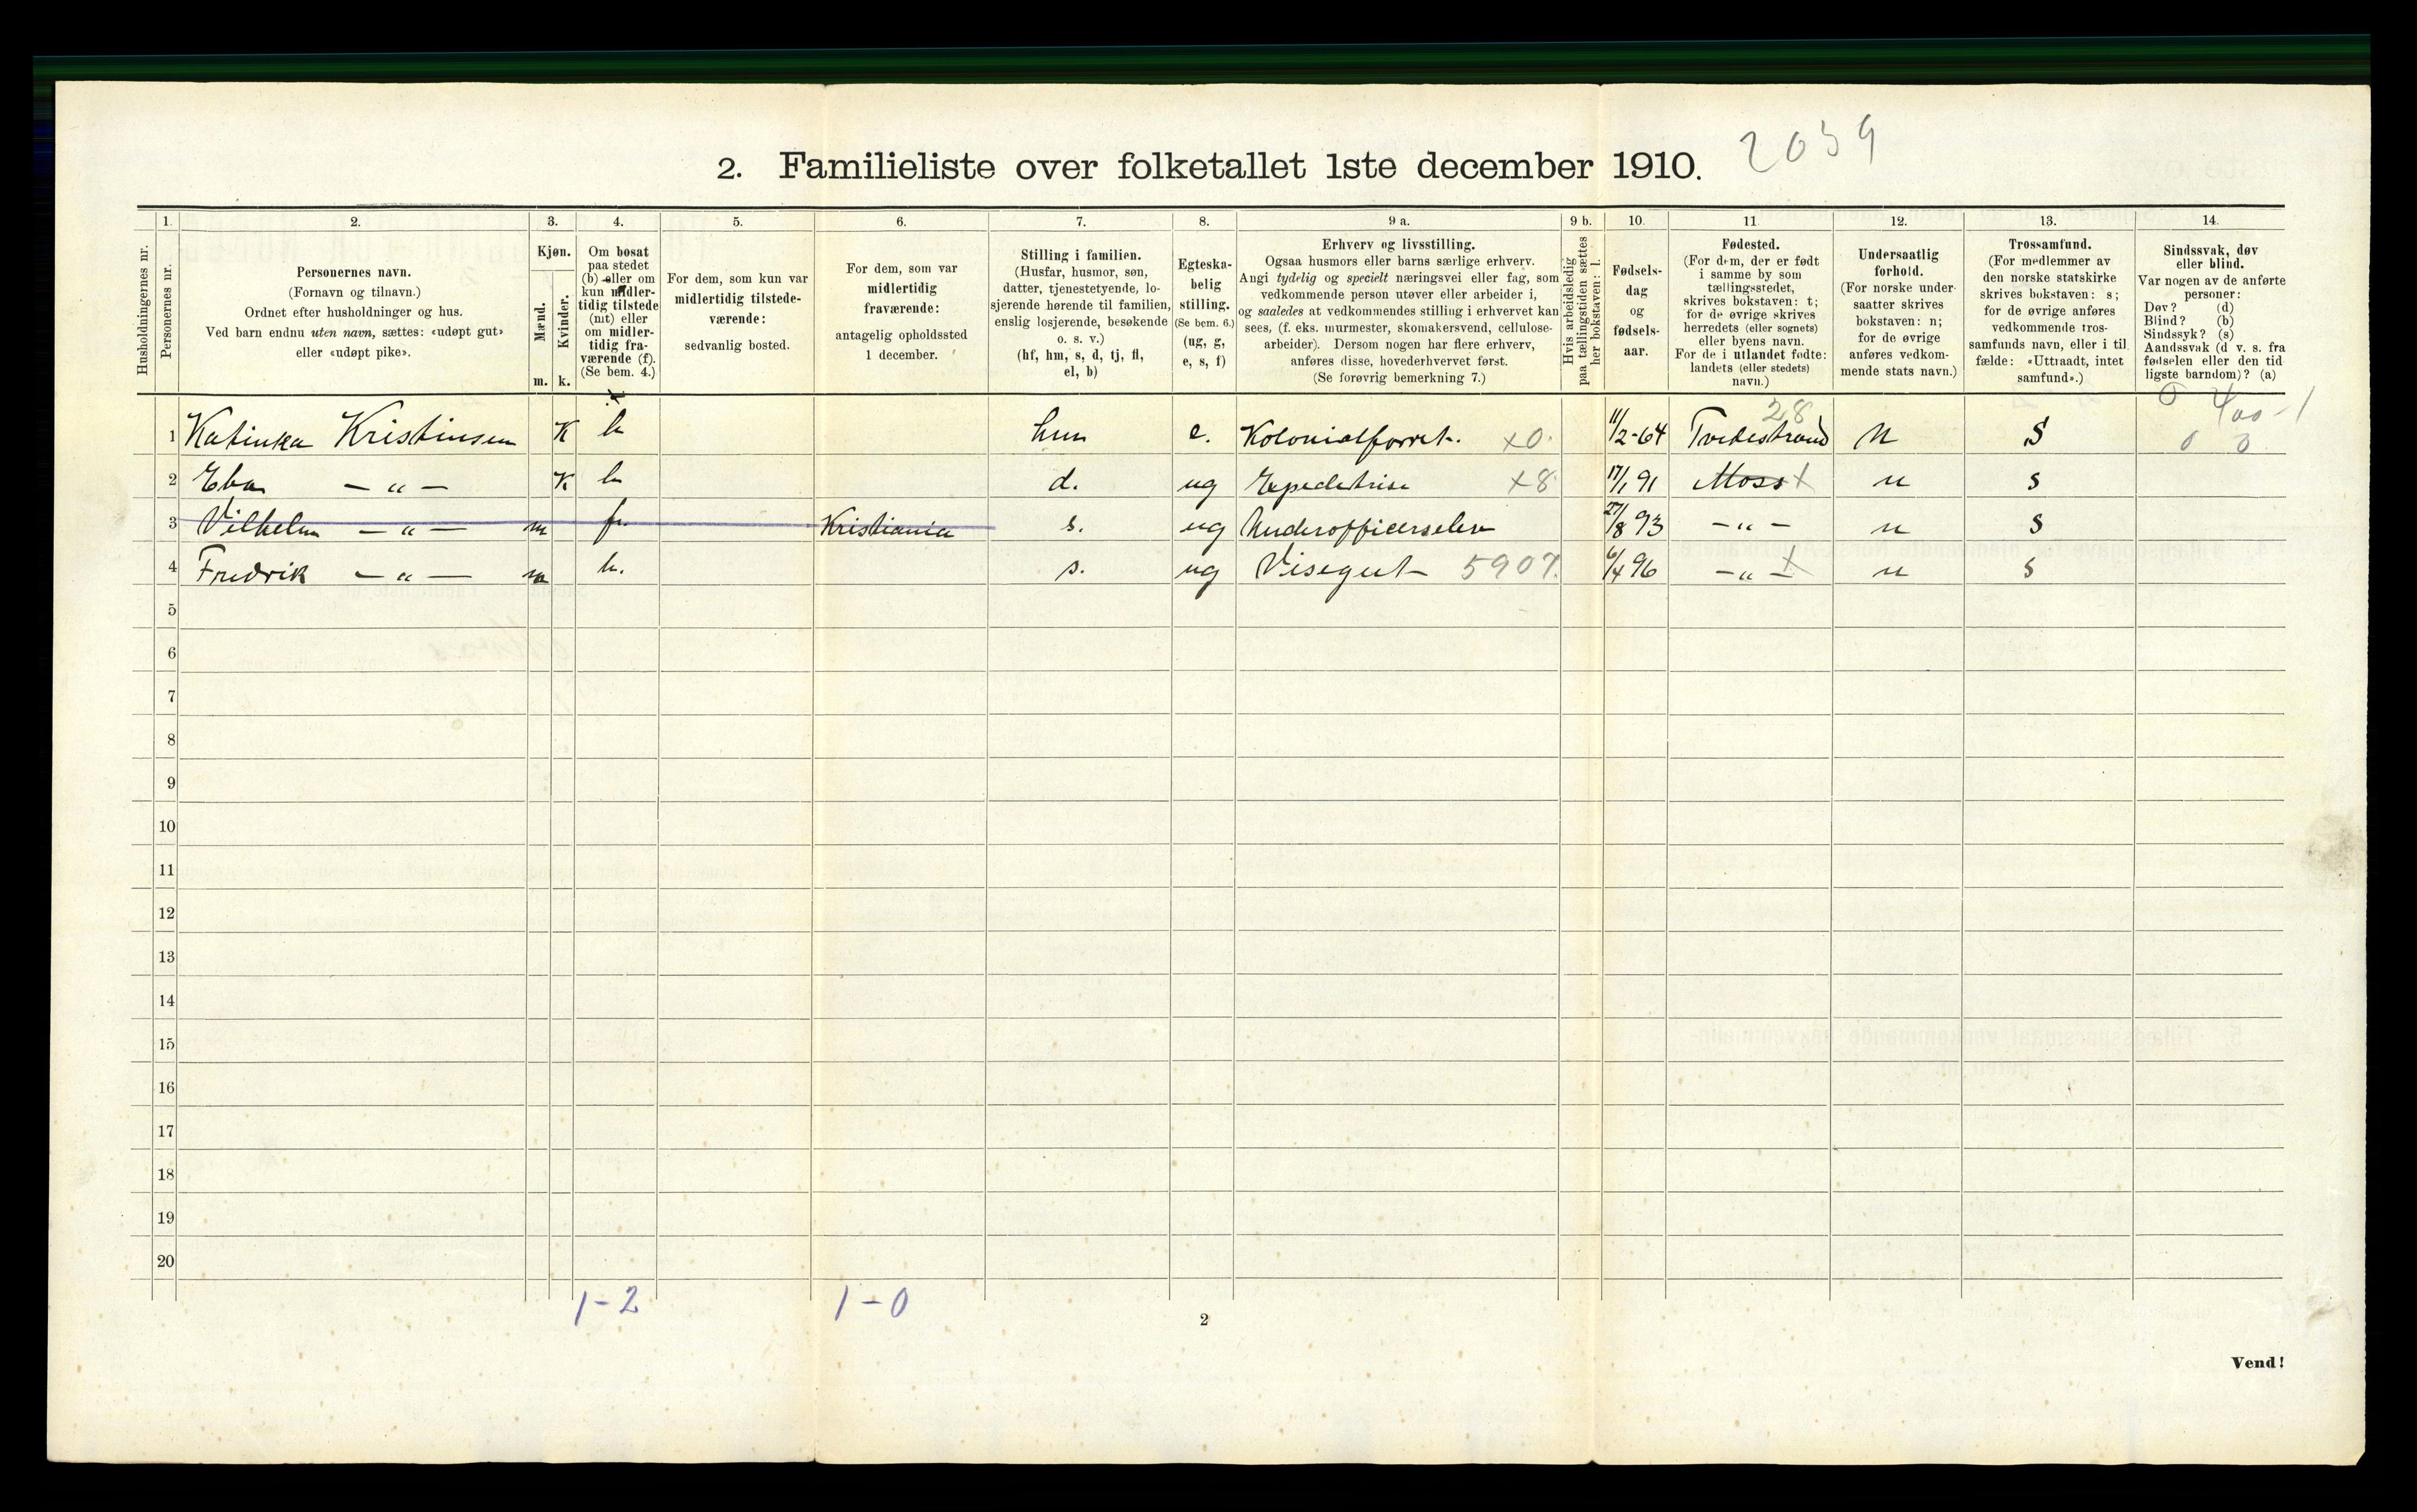 2. Familieliste over folketallet 1ste december 1910. 2039
1. 2. 3. 4. 5. 6. 7. 8. 9 a. 9 b. 10. 11 12. 13. 14.
Husholdningernes nr.
Personernes nr.
Personernes navn.
(Fornavn og tilnavn.)
Ordnet efter husholdninger og hus.
Ved barn endnu uten navn, sættes: «udøpt gut»
eller «udøpt pike».
Kjøn.
Mænd.
Kvinder.
m. k.
Om bosat
paa stedet
(b) eller om
kun midler-
tidig tilstede
(mt) eller
om midler-
tidig fra-
værende (f).
(Se bem. 4.)
For dem, som kun var
midlertidig tilstede-
værende:
sedvanlig bosted.
For dem, som var
midlertidig
fraværende:
antagelig opholdssted
1 december.
Stilling i familien.
(Husfar, husmor, søn,
datter, tjenestetyende, lo-
sjerende hørende til familien,
enslig losjerende, besøkende
o. s. v.)
(hf, hm, s, d, tj, fl,
el, b)
Egteska-
belig
stilling.
(Se bem. 6.)
(ug, g,
e, s, f)
Erhverv og livsstilling.
Ogsaa husmors eller barns særlige erhverv.
Angi tydelig og specielt næringsvei eller fag, som
vedkommende person utøver eller arbeider i,
og saaledes at vedkommendes stilling i erhvervet kan
sees, (f. eks. murmester, skomakersvend, cellulose-
arbeider). Dersom nogen har flere erhverv,
anføres disse, hovederhvervet først.
(Se forøvrig bemerkning 7.)
Hvis arbeidsledig
paa tællingstiden sættes
her bokstaven: l.
Fødsels-
dag
og
fødsels-
aar.
Fødested.
(For dem, der er født
i samme by som
tællingsstedet,
skrives bokstaven: t;
for de øvrige skrives
herredets (eller sognets)
eller byens navn.
For de i utlandet fødte:
landets (eller stedets)
navn.)
Undersaatlig
forhold.
(For norske under-
saatter skrives
bokstaven: n;
for de øvrige
anføres vedkom-
mende stats navn.)
Trossamfund.
(For medlemmer av
den norske statskirke
skrives bokstaven: s;
for de øvrige anføres
vedkommende tros-
samfunds navn, eller i til-
fælde: «Uttraadt, intet
samfund».)
Sindssvak, døv
eller blind.
Var nogen av de anførte
personer:
Døv? (d)
Blind? (b)
Sindssyk? (s)
Aandssvak (d v. s. fra
fødselen eller den tid-
ligste barndom)? (a)
28 0 400-1
1 Katinka Kristinsen K b hm e. Kolonialforret. x0. 11/2-64 Tvedestrand N S 0 0
2 Eba — „ — K b d. ug Expeditrise x8 17/1 91 Moss x n s
3 Vilhelm — „ — m fr. Kristiania s. ug Underofficerselev 27/8 93 — „ — n S
4 Fredrik — „ — m b. s. ug Visegut 5907. 6/4 96 — „ — x n s
5
6
7
8
9
10
11
12
13
14
15
16
17
18
19
20
1-2 1-0
2
Vend!